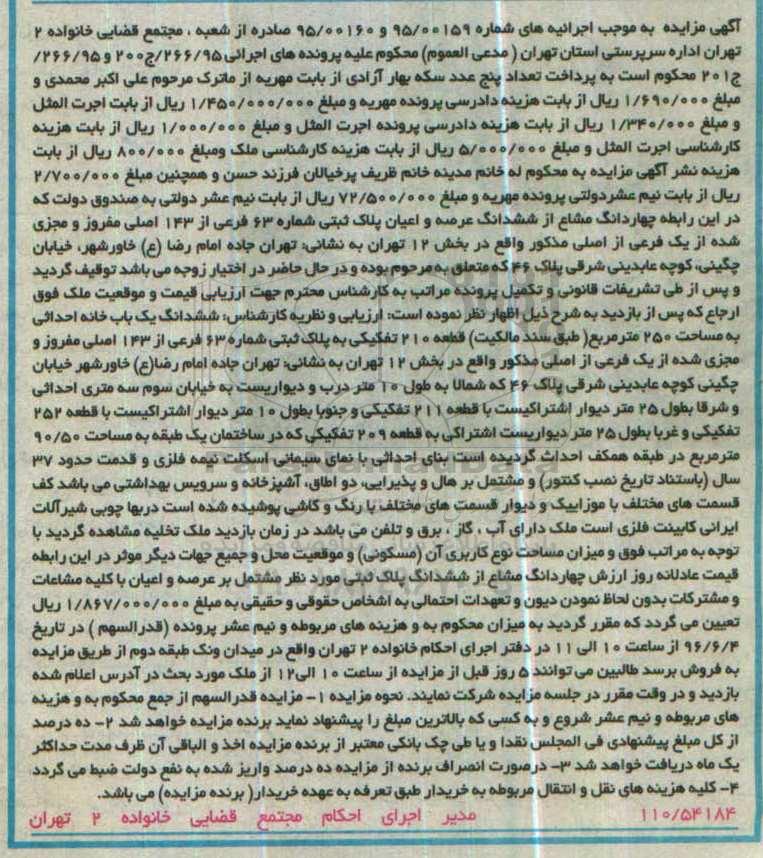 آگهی مزایده به موجب اجرائیه های شماره ۹۵/۰۰۱۵۹ و ۹۵/۰۰۱۶۰ صادره از شعبه ، مجتمع قضایی خانواده ۲
تهران اداره سرپرستی استان تهران ( مدعی العموم) محکوم علیه پرونده های اجرائی ۲۶۶/۹۵/ج۲۰۰ و ۲۶۶/۹۵/
ج۲۰۱ محکوم است به پرداخت تعداد پنج عدد سکه بهار آزادی از بابت مهریه از ماترک مرحوم علی اکبر محمدی و
مبلغ ۱/۶۹۰/۰۰۰ ریال از بابت هزینه دادرسی پرونده مهریه و مبلغ ۱/۴۵۰/۰۰۰/۰۰۰ ریال از بابت اجرت المثل
و مبلغ ۱/۳۴۰/۰۰۰ ریال از بابت هزینه دادرسی پرونده اجرت المثل و مبلغ ۱/۰۰۰/۰۰۰ ریال از بابت هزینه
کارشناسی اجرت المثل و مبلغ ۵/۰۰۰/۰۰۰ ریال از بابت هزینه کارشناسی ملک ومبلغ ۸۰۰/۰۰۰ ریال از بابت
هزینه نشر آگهی مزایده به محکوم له خانم مدینه خانم ظریف پرخیالان فرزند حسن و همچنین مبلغ ۲/۷۰۰/۰۰۰
ریال از بابت نیم عشردولتی پرونده مهریه و مبلغ ۷۲/۵۰۰/۰۰۰ ریال از بابت نیم عشر دولتی به صندوق دولت که
در این رابطه چهاردانگ مشاع از ششدانگ عرصه و اعیان پلاک ثبتی شماره ۶۳ فرعی از ۱۴۳ اصلی مفروز و مجزی
شده از یک فرعی از اصلی مذکور واقع در بخش ۱۲ تهران به نشانی: تهران جاده امام رضا (ع) خاورشهر، خیابان
چگینی، کوچه عابدینی شرقی پلاک ۴۶ که متعلق به مرحوم بوده و در حال حاضر در اختیار زوجه می باشد توقیف گردید
و پس از طی تشریفات قانونی و تکمیل پرونده مراتب به کارشناس محترم جهت ارزیابی قیمت و موقعیت ملک فوق
ارجاع که پس از بازدید به شرح ذیل اظهار نظر نموده است: ارزیابی و نظریه کارشناس: ششدانگ یک باب خانه احداثی
به مساحت ۲۵۰ مترمربع( طبق سند مالکیت) قطعه ۲۱۰ تفکیکی به پلاک ثبتی شماره ۶۳ فرعی از ۱۴۳ اصلی مفروز و
مجزی شده از یک فرعی از اصلی مذکور واقع در بخش ۱۲ تهران به نشانی: تهران جاده امام رضا(ع) خاورشهر خیابان
چگینی کوچه عابدینی شرقی پلاک ۴۶ که شمالا به طول ۱۰ متر درب و دیواریست به خیابان سوم سه متری احداثی
و شرقا بطول ۲۵ متر دیوار اشتراکیست با قطعه ۲۱۱ تفکیکی و جنوبا بطول ۱۰ متر دیوار اشتراکیست با قطعه ۲۵۲
تفکیکی و غربا بطول ۲۵ متر دیواریست اشتراکی به قطعه ۲۰۹ تفکیکی که در ساختمان یک طبقه به مساحت ۹۰/۵۰
مترمربع در طبقه همکف احداث گردیده است بنای احداثی با نمای سیمانی اسکلت نیمه فلزی و قدمت حدود ۳۷
سال (باستناد تاریخ نصب کنتور) و مشتمل بر هال و پذیرایی، دو اطاق، آشپزخانه و سرویس بهداشتی می باشد کف
قسمت های مختلف با موزاییک و دیوار قسمت های مختلف با رنگ و کاشی پوشیده شده است دربها چوبی شیرآلات
ایرانی کابینت فلزی است ملک دارای آب ، گاز ، برق و تلفن می باشد در زمان بازدید ملک تخلیه مشاهده گردید با
توجه به مراتب فوق و میزان مساحت نوع کاربری آن (مسکونی) و موقعیت محل و جمیع جهات دیگر موثر در این رابطه
قیمت عادلانه روز ارزش چهاردانگ مشاع از ششدانگ پلاک ثبتی مورد نظر مشتمل بر عرصه و اعیان با کلیه مشاعات
و مشترکات بدون لحاظ نمودن دیون و تعهدات احتمالی به اشخاص حقوقی و حقیقی به مبلغ ۱/۸۶۷/۰۰۰/۰۰۰ ریال
تعیین می گردد که مقرر گردید به میزان محکوم به و هزینه های مربوطه و نیم عشر پرونده (قدرالسهم ) در تاریخ
۹۶/۶/۴ از ساعت ۱۰ الی ۱۱ در دفتر اجرای احکام خانواده ۲ تهران واقع در میدان ونک طبقه دوم از طریق مزایده
به فروش برسد طالبین می توانند ۵ روز قبل از مزایده از ساعت ۱۰ الی۱۲ از ملک مورد بحث در آدرس اعلام شده
بازدید و در وقت مقرر در جلسه مزایده شرکت نمایند. نحوه مزایده ۱- مزایده قدرالسهم از جمع محکوم به و هزینه
های مربوطه و نیم عشر شروع و به کسی که بالاترین مبلغ را پیشنهاد نماید برنده مزایده خواهد شد ۲- ده درصد
از کل مبلغ پیشنهادی فی المجلس نقدا و یا طی چک بانکی معتبر از برنده مزایده اخذ و الباقی آن ظرف مدت حداکثر
یک ماه دریافت خواهد شد ۳- درصورت انصراف برنده از مزایده ده درصد واریز شده به نفع دولت ضبط می گردد
۴- کلیه هزینه های نقل و انتقال مربوطه به خریدار طبق تعرفه به عهده خریدار( برنده مزایده) می باشد.
۱۱۰/۵۴۱۸۴ مدیر اجرای احکام مجتمع قضایی خانواده ۲ تهران